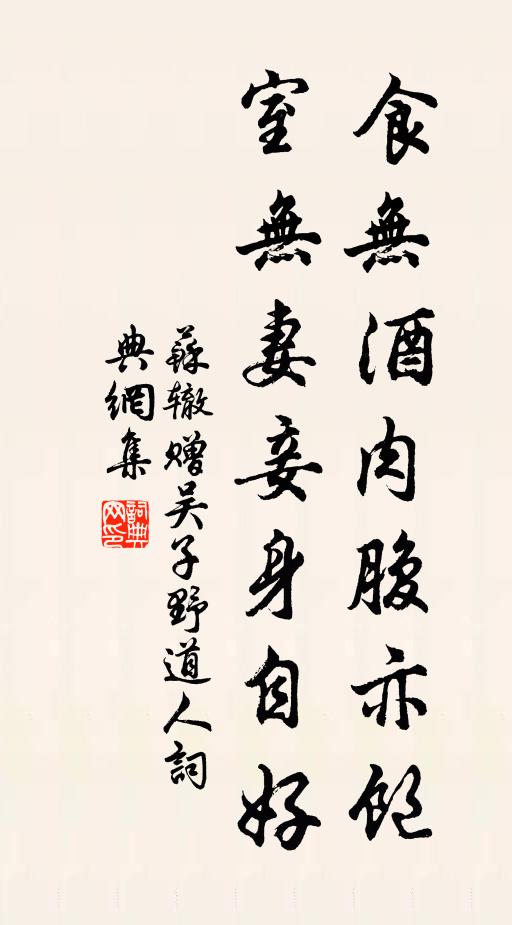 食無酒肉腹亦飽
室無妻妾身自好
蘇轍贈吴子野道人詞
典網集
詞典網印